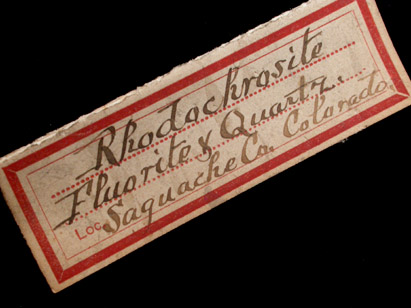 Rhodochrosite
Fluorite & Quartz.
Loc. Saguache Co. Colorado.